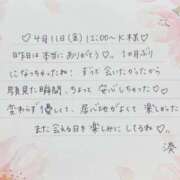 ♡4月11日(金)12:00〜K様♡
昨日は本当にありがとう♡。1ヶ月ぶり
になっちゃったね！ずっと会いたかったから
顔見た瞬間、ちょっと安心しちゃった♡
変わらず優しくて、居心地がよくて楽しかった
また会える日を楽しみにしてるね♡。
湊